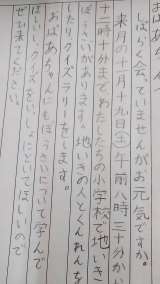 しばらく会っていませんがお元気ですか。
来月の十月十九日(土)午前八時三十分から
十二時十分までわたしたちの小学校で地いき
ぼうさいがあります。地いきのとくんれんを
したりクイズラリーをします。
おばあちゃんにもぼうさいについて学んで
ほしいし、クイズをいっしょにといてほしいので
ぜひ来てください。